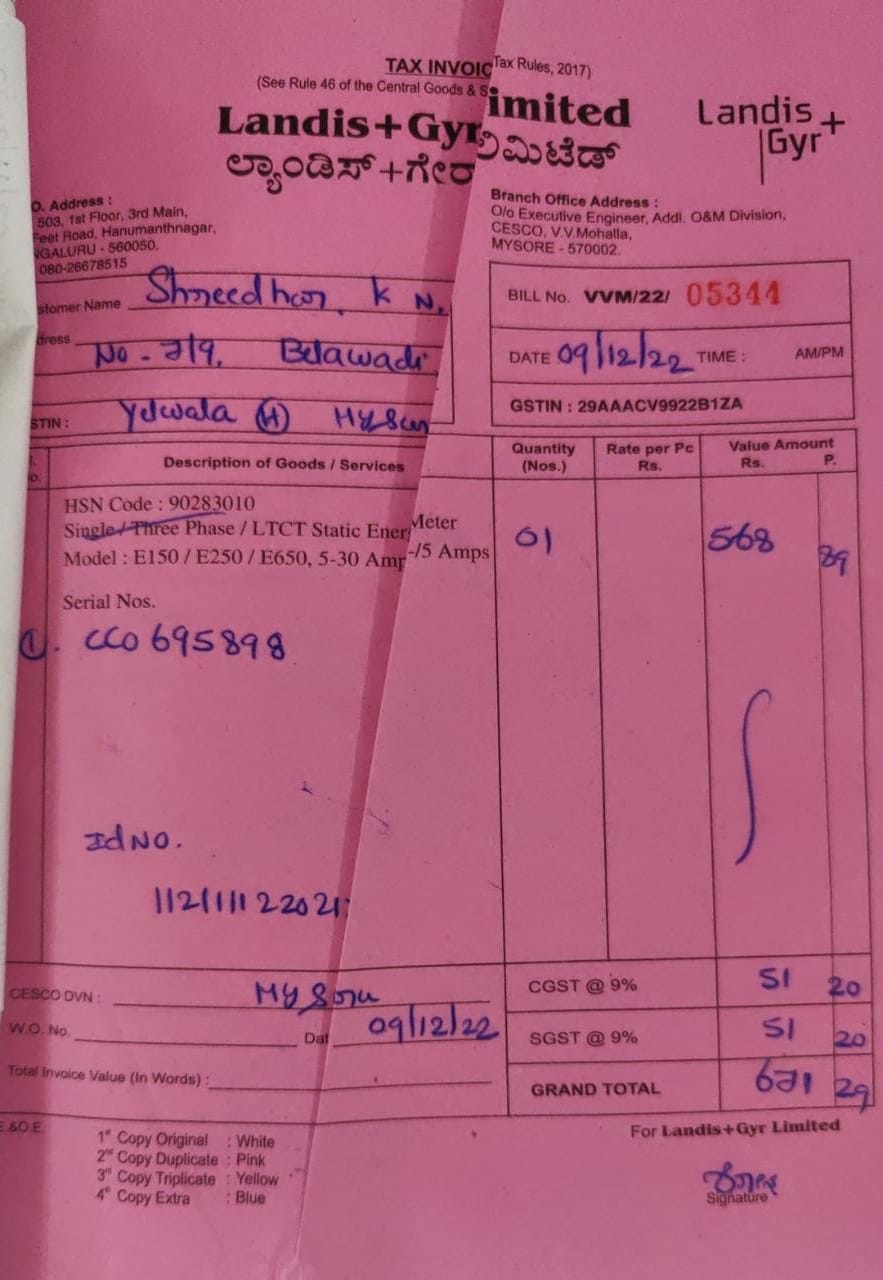 TAX INVOIC Tax Rules, 2017)
(See Rule 46 of the Central Goods & S
Landis+Gyr imited
ಲ್ಯಾಂಡಿಸ್+ಗೇರ ಲಿಮಿಟೆಡ್
Landis
Gyr+
O. Address :
503, 1st Floor, 3rd Main,
Feet Road, Hanumanthnagar,
NGALURU - 560050.
080-26678515
Branch Office Address :
O/o Executive Engineer, Addl. O&M Division,
CESCO, V.V.Mohalla,
MYSORE - 570002.
stomer Name Shreedhar. K N.
dress No - 719, Belawadi
STIN : Yelwala (H) Mysore
BILL No. VVM/22/ 05344
DATE 09/12/22 TIME : AM/PM
GSTIN : 29AAACV9922B1ZA
Description of Goods / Services
Quantity (Nos.)
Rate per Pc Rs.
Value Amount Rs. P.
HSN Code : 90283010
Single / Three Phase / LTCT Static Ener Meter
Model : E150 / E250 / E650, 5-30 Amp -/5 Amps
01 568 89
Serial Nos.
1. CC0695898
Id NO.
CESCO DVN : Mysoru
W.O. No. Dat 09/12/22
Total Invoice Value (In Words) :
CGST @ 9% 51 20
SGST @ 9% 51 20
GRAND TOTAL 671 29
E.&O.E.
1st Copy Original : White
2nd Copy Duplicate : Pink
3rd Copy Triplicate : Yellow
4th Copy Extra : Blue
For Landis+Gyr Limited
Signature